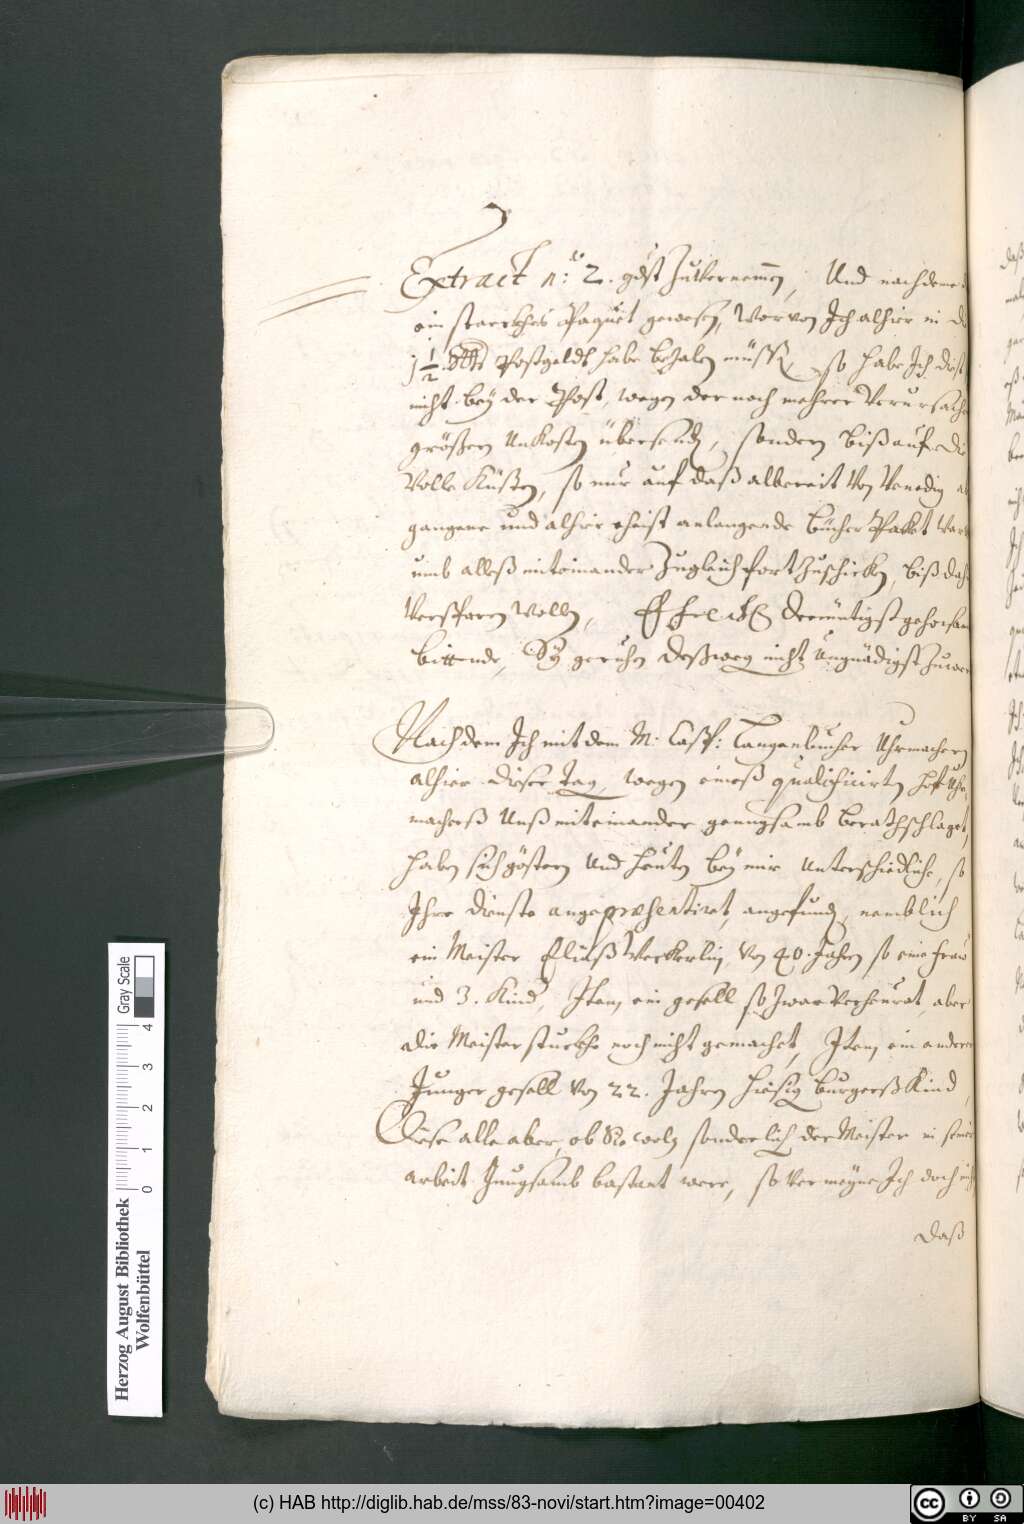 Extract n: 2. gdst Zuvernemen, Und nachdeme
ein starckhes Paquet gewesen, Worvon Ich alhier in
1 1/2 Postgeldt habe bezalen müssen, so habe Ich
nicht bey der Post, wegen der noch mehrer Verursach
größern Unkosten übersenden, sondern biß auf die
Volle Küsten, so nur auf daß albereit Von Venedig
gangene und alhier ehist anlangende Bücher Pakket
umb alleß miteinander Zugleich fortzuschickhen, biß
Versparen Wollen, demüetigst gehorsam
bittende, Sy geruhen deßweg nicht Ungnädigst
Nachdem Ich mit dem M. Casp: Langenbucher Uhrmachern
alhier diser Tag, wegen eineß qualificirten Hof Uhr
macherß Unß miteinander genugsamb berathschlaget,
haben sich gestern Und heuten bey mir Unterschiedliche, so
Ihre dienste angepræsentiret, angefunden, nemblich
ein Meister Eliaß Weckerlin, Von 40. Jahren so eine Fraw
und 3. Kind, Item, ein gesell so Zwar Verheurat, aber
die Meisterstuckhe noch nicht gemachet, Item, ein anderer
Junger gesell Von 22. Jahren hiesig Burgerß Kind,
Dise alle aber, ob Sie wolen sonderlich der Meister in seiner
arbeit genugsamb bastant were, so Vermeyne Ich doch
daß
Herzog August Bibliothek
Wolfenbüttel
Gray Scale
0 1 2 3 4
(c) HAB http://diglib.hab.de/mss/83-novi/start.htm?image=00402
cc BY SA